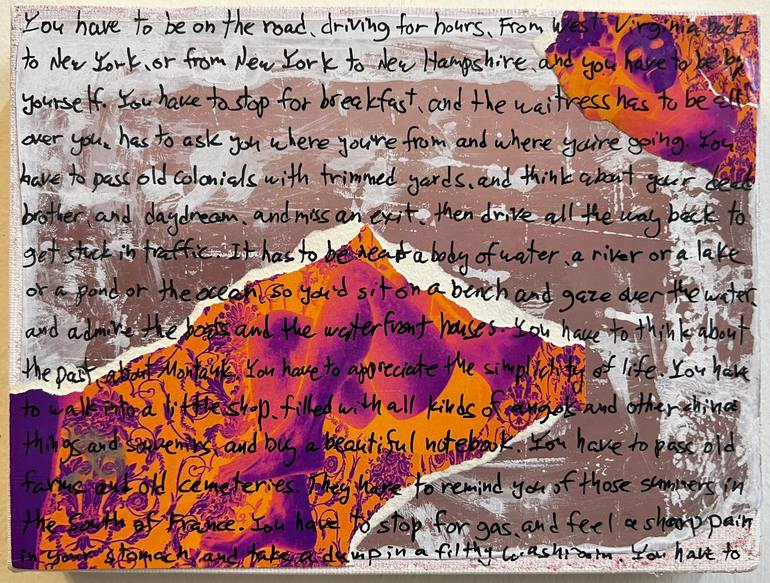 You have to be on the road, driving for hours. From West Virginia back
to New York, or from New York to New Hampshire, and you have to be by
yourself. You have to stop for breakfast, and the waitress has to be all
over you, has to ask you where you're from and where you're going. You
have to pass old colonials with trimmed yards, and think about your dead
brother, and daydream, and miss an exit, then drive all the way back to
get stuck in traffic. It has to be near a body of water, a river or a lake
or a pond or the ocean, so you'd sit on a bench and gaze over the water,
and admire the boats and the waterfront houses. You have to think about
the past, about Montauk. You have to appreciate the simplicity of life. You have
to walk into a little shop, filled with all kinds of angels and other china
things and souvenirs, and buy a beautiful notebook. You have to pass old
farms and old cemeteries. They have to remind you of those summers in
the South of France. You have to stop for gas, and feel a sharp pain
in your stomach, and take a dump in a filthy washroom. You have to